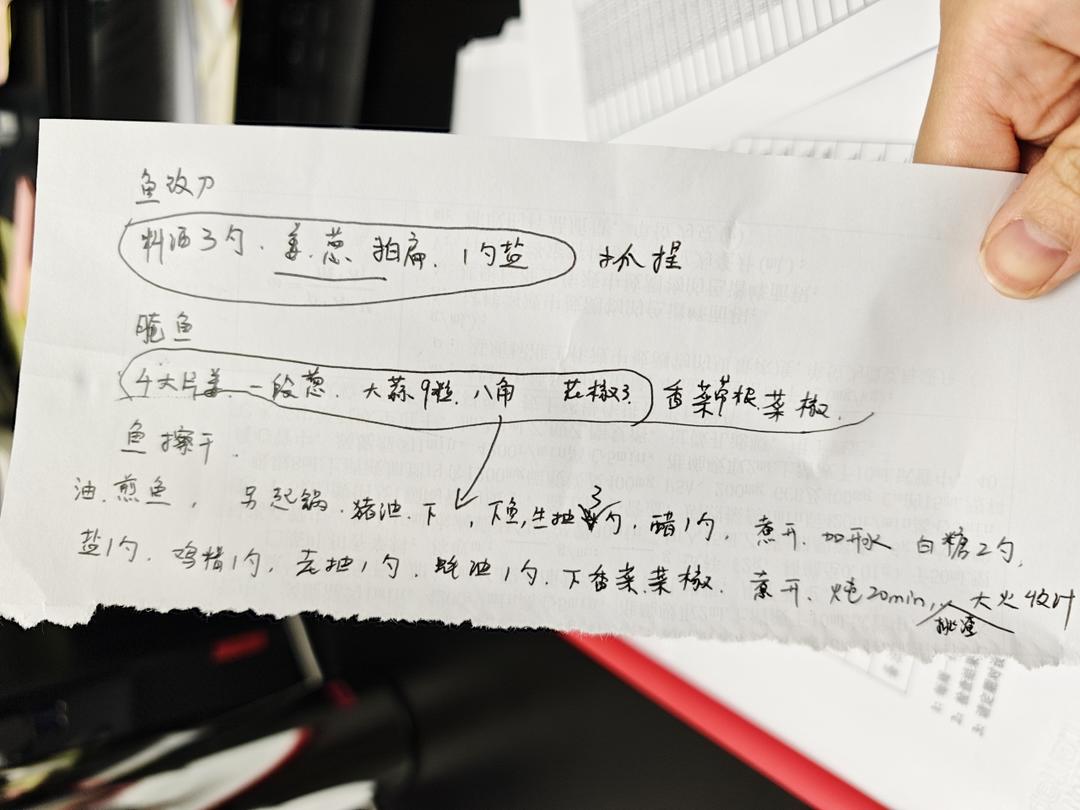 鱼改刀
料酒3勺. 姜.葱 拍扁. 1勺盐 抓捏
腌鱼
4大片姜 一段葱. 大蒜9粒. 八角 花椒3. 香菜带根. 菜椒.
鱼擦干.
油.煎鱼, 另起锅.猪油.下 , 下鱼,生抽3勺, 醋1勺, 煮开. 加开水 白糖2勺,
盐1勺. 鸡精1勺, 老抽1勺. 蚝油1勺.下香菜.菜椒. 煮开. 炖20min, 大火收汁
挑渣